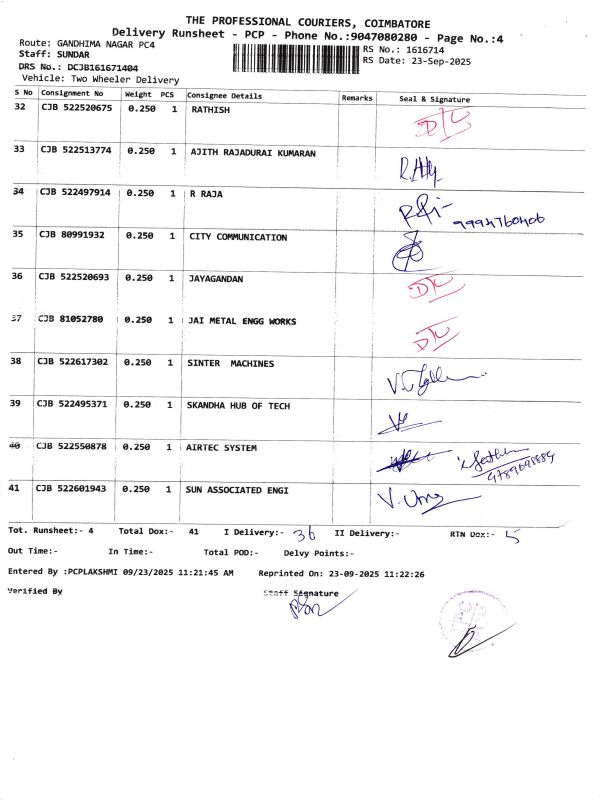 THE PROFESSIONAL COURIERS, COIMBATORE
Delivery Runsheet - PCP - Phone No.:9047080280 - Page No.:4
Route: GANDHIMA NAGAR PC4 RS No.: 1616714
Staff: SUNDAR RS Date: 23-Sep-2025
DRS No.: DCJB161671404
Vehicle: Two Wheeler Delivery
S No Consignment No Weight PCS Consignee Details Remarks Seal & Signature
32 CJB 522520675 0.250 1 RATHISH D/C
33 CJB 522513774 0.250 1 AJITH RAJADURAI KUMARAN
34 CJB 522497914 0.250 1 R RAJA
35 CJB 80991932 0.250 1 CITY COMMUNICATION
36 CJB 522520693 0.250 1 JAYAGANDAN
37 CJB 81052780 0.250 1 JAI METAL ENGG WORKS
38 CJB 522617302 0.250 1 SINTER MACHINES
39 CJB 522495371 0.250 1 SKANDHA HUB OF TECH
40 CJB 522550878 0.250 1 AIRTEC SYSTEM
41 CJB 522601943 0.250 1 SUN ASSOCIATED ENGI
Tot. Runsheet:- 4 Total Dox:- 41 I Delivery:- 36 II Delivery:- RTN Dox:- 5
Out Time:- In Time:- Total POD:- Delvy Points:-
Entered By :PCPLAKSHMI 09/23/2025 11:21:45 AM Reprinted On: 23-09-2025 11:22:26
Verified By Staff Signature